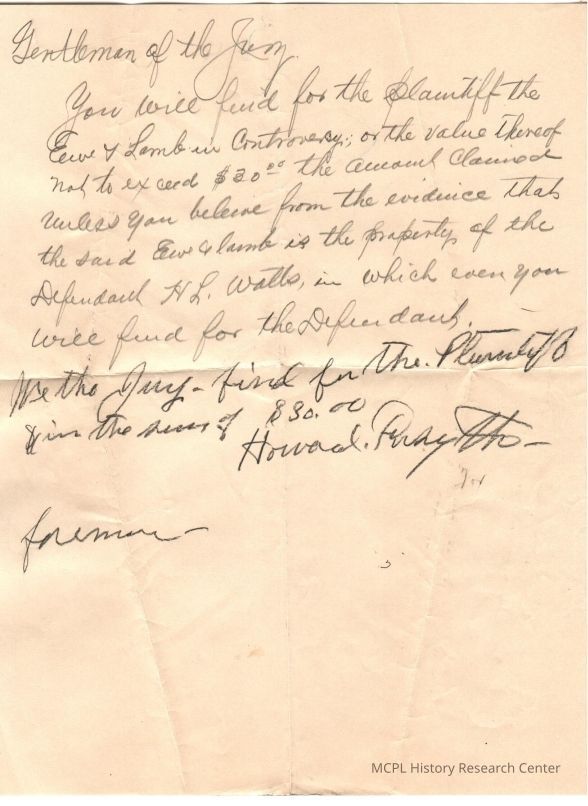 Gentleman of the Jury.
You will find for the Plaintiff the
Ewe & Lamb in Controversy; or the value thereof
not to exceed $30.00 the amount Claimed
unless you believe from the evidence that
the said Ewe & lamb is the property of the
Defendant H L. Watts, in which even you
will find for the Defendant.
We the Jury - find for the Pluntiff
in the sum of $30.00
Howard.
foreman
MCPL History Research Center